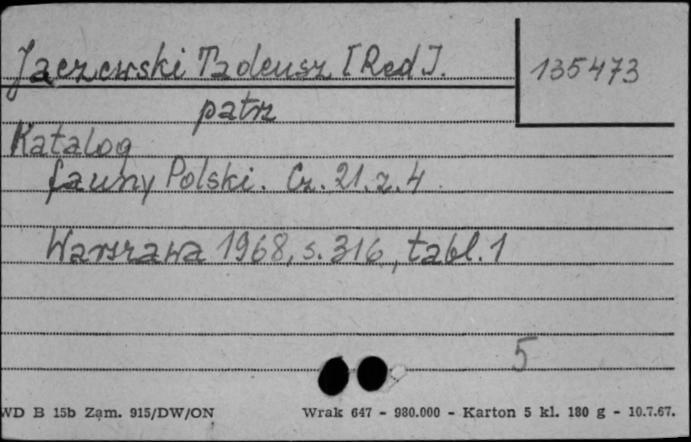 Jaczewski Tadeusz [Red].
135473
patrz
Katalog
fauny Polski. Cz. 21. z. 4
Warszawa 1968, s. 316, tabl. 1
5
WD B 15b Zam. 915/DW/ON
Wrak 647 - 980.000 - Karton 5 kl. 180 g - 10.7.67.